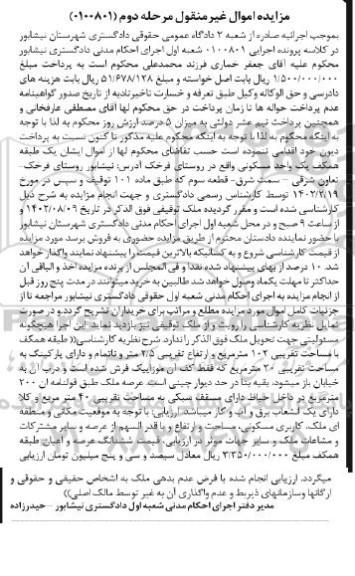 مزایده اموال غیر منقول مرحله دوم (۰۱۰۰۸۰۱)
بموجب اجرائیه صادره از شعبه ۲ دادگاه عمومی حقوقی دادگستری شهرستان نیشابور
در کلاسه پرونده اجرایی ۰۱۰۰۸۰۱ شعبه اول اجرای احکام مدنی دادگستری نیشابور
محکوم علیه آقای جعفر خماری فرزند محمدعلی محکوم است به پرداخت مبلغ
۱/۵۰۰/۰۰۰/۰۰۰ ریال بابت اصل خواسته و مبلغ ۵۱/۶۷۸/۱۲۸ ریال بابت هزینه های
دادرسی و حق الوکاله وکیل طبق تعرفه و خسارت تاخیر تادیه از تاریخ صدور گواهینامه
عدم پرداخت حواله ها تا زمان پرداخت در حق محکوم لها آقای مصطفی عارفخانی و
همچنین پرداخت نیم عشر دولتی به میزان ۵ درصد ارزش روز محکوم به لذا با توجه
به اینکه محکوم به لذا با توجه به اینکه محکوم علیه مذکور تا کنون نسبت به پرداخت
دیون خود اقدامی ننموده است حسب تقاضای محکوم لها از اموال ایشان یک طبقه
همکف یک واحد مسکونی واقع در روستای فرخک آدرس: نیشابور روستای فرخک-
تعاون شرقی – سمت شرق- قطعه سوم که طبق ماده ۱۰۱ توقیف و سپس در مورخ
۱۴۰۲/۲/۱۹ توسط کارشناس رسمی دادگستری و جهت انجام مزایده به شرح ذیل
کارشناسی شده است و مقرر گردیده ملک توقیفی فوق الذکر در تاریخ ۱۴۰۲/۰۸/۰۹ و
از ساعت ۹ صبح و در محل شعبه اول اجرای احکام مدنی دادگستری شهرستان نیشابور
با حضور نماینده دادستان محترم از طریق مزایده حضوری به فروش برسد مورد مزایده
از قیمت کارشناسی شروع و به کسانیکه بالاترین قیمت را پیشنهاد نمایند واگذار خواهد
شد. ۱۰ درصد از بهای پیشنهاد شده نقدا و فی المجلس از برنده مزایده اخذ و الباقی آن
حداکثر تا مهلت یکماه وصول خواهد شد طالبین به خرید میتوانند در مدت پنج روز قبل
از انجام مزایده به اجرای احکام مدنی شعبه اول حقوقی دادگستری نیشابور مراجعه تا از
جزئیات کامل اموال مورد مزایده مطلع و مراتب برای خریداران تشریح گردد و در صورت
تمایل نظریه کارشناسی را رویت و از ملک توقیفی نیز بازدید نماید. این اجرا هیچگونه
مسئولیتی جهت تحویل ملک فوق الذکر را ندارد. شرح نظریه کارشناسی(( طبقه همکف
با مساحت تقریبی ۱۰۲ مترمربع و ارتفاع تقریبی ۲/۵ متر و ناتمام و دارای پارکینگ به
مساحت تقریبی ۲۰ مترمربع که فقط کف آن موزاییک فرش شده است و درب آن به
خیابان باز میشود. بقیه بنا در حد دیوار چینی است. عرصه ملک طبق قولنامه ان ۲۰۰
مترمربع در داخل حیاط دارای مسقف سبکی به مساحت تقریبی ۴۰ متر مربع و کلا
دارای یک انشعاب برق و آب و گاز میباشد. ارزیابی: با توجه به موقعیت مکانی و منطقه
ای ملک، کاربری مسکونی، مساحت و ارتفاع و با قدر السهم از عرصه و سایر مشترکات
و مشاعات ملک و سایر جهات موثر در ارزیابی، قیمت ششدانگ عرصه و اعیان طبقه
همکف مبلغ ۳/۳۵۰/۰۰۰/۰۰۰ ریال معادل سیصد و سی و پنج میلیون تومان ارزیابی
میگردد. ارزیابی انجام شده با فرض عدم بدهی ملک به اشخاص حقیقی و حقوقی و
ارگانها وسازمانهای ذیربط و عدم واگذاری آن به غیر توسط مالک اصلی))
مدیر دفتر اجرای احکام مدنی شعبه اول دادگستری نیشابور - حیدرزاده